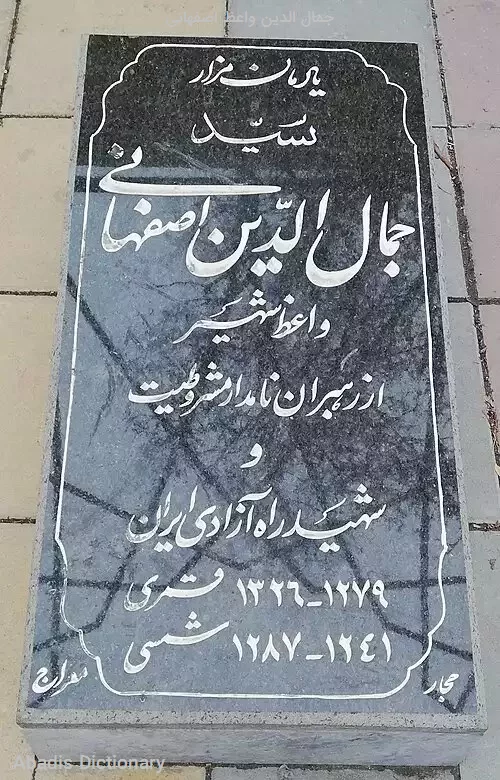 جمال الدین واعظ اصفهانی
یادمان مزار
سیّد
جمال الدّین اصفهانی
واعظ شهیر
از رهبران نامدار مشروطیت
و
شهید راه آزادی ایران
۱۲۷۹-۱۳۲۶ قمری
۱۲۴۱-۱۲۸۷ شمسی
حجار
معراج
Abadis Dictionary